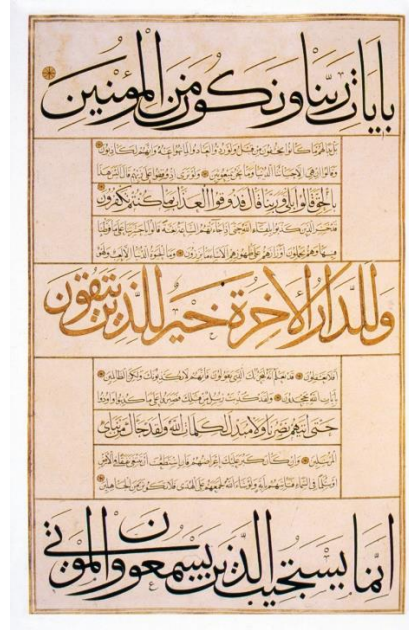 بآيات ربنا ونكون من المؤمنين
بل بدا لهم ما كانوا يخفون من قبل ولو ردوا لعادوا لما نهوا عنه وإنهم لكاذبون
وقالوا إن هي إلا حياتنا الدنيا وما نحن بمبعوثين ولو ترى إذ وقفوا على ربهم قال أليس هذا
بالحق قالوا بلى وربنا قال فذوقوا العذاب بما كنتم تكفرون
قد خسر الذين كذبوا بلقاء الله حتى إذا جاءتهم الساعة بغتة قالوا يا حسرتنا على ما فرطنا
فيها وهم يحملون أوزارهم على ظهورهم ألا ساء ما يزرون وما الحياة الدنيا إلا لعب ولهو
وللدار الآخرة خير للذين يتقون
أفلا تعقلون قد نعلم إنه ليحزنك الذي يقولون فإنهم لا يكذبونك ولكن الظالمين
بآيات الله يجحدون ولقد كذبت رسل من قبلك فصبروا على ما كذبوا وأوذوا
حتى أتيهم نصرنا ولا مبدل لكلمات الله ولقد جاءك من نبإى
المرسلين وإن كان كبر عليك إعراضهم فإن استطعت أن تبتغي نفقا في الأرض
أو سلما في السماء فتأتيهم بآية ولو شاء الله لجمعهم على الهدى فلا تكونن من الجاهلين
إنما يستجيب الذين يسمعون والموتى